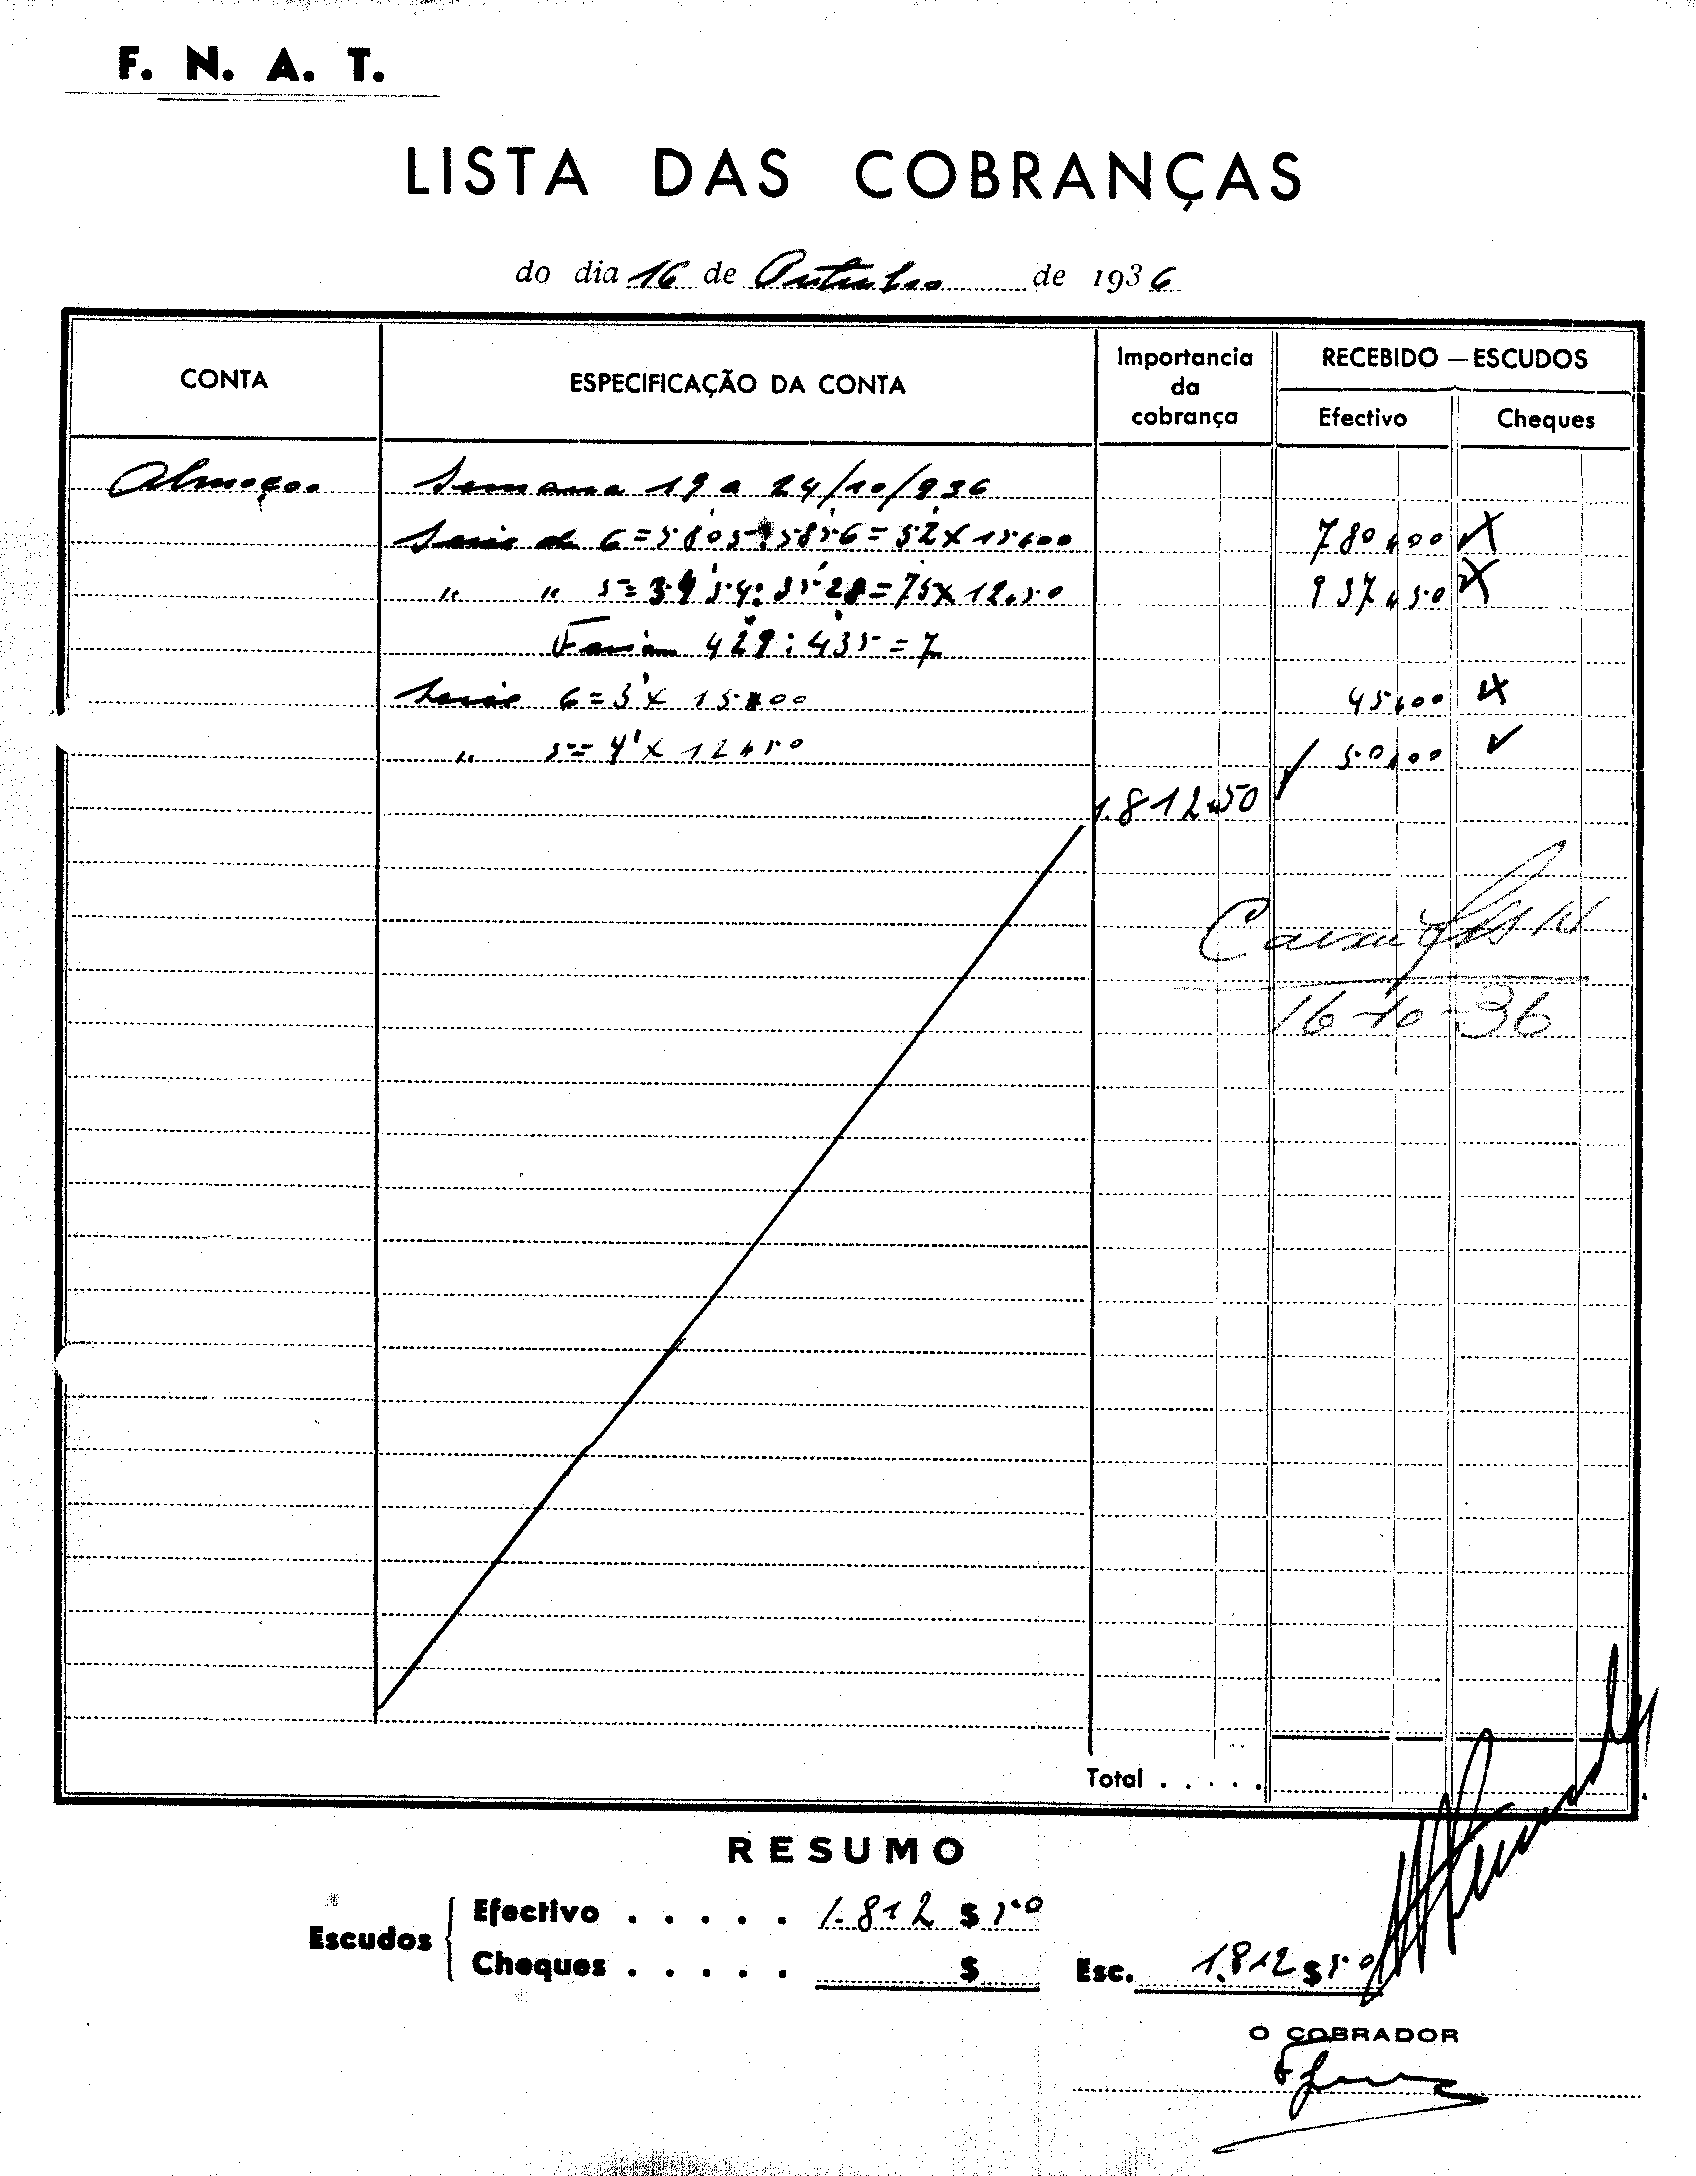 F. N. A. T.
LISTA DAS COBRANÇAS
do dia 16 de Outubro de 1936
CONTA
ESPECIFICAÇÃO DA CONTA
Importancia da cobrança
RECEBIDO — ESCUDOS
Efectivo
Cheques
Almoços
Semana 19 a 24/10/936
Serie de 6 = 5805 : 5856 = 52 x 15$00 780$00
" " 5 = 3454 : 3528 = 75 x 12$50 937$50
429 : 435 = 7
Serie 6 = 3 x 15$00 45$00
" 5 = 4 x 12$50 50$00
1.812$50
16-10-36
Total . . . . .
RESUMO
Escudos
Efectivo . . . . . 1.812 $ 50
Cheques . . . . . $
Esc. 1.812 $ 50
O COBRADOR